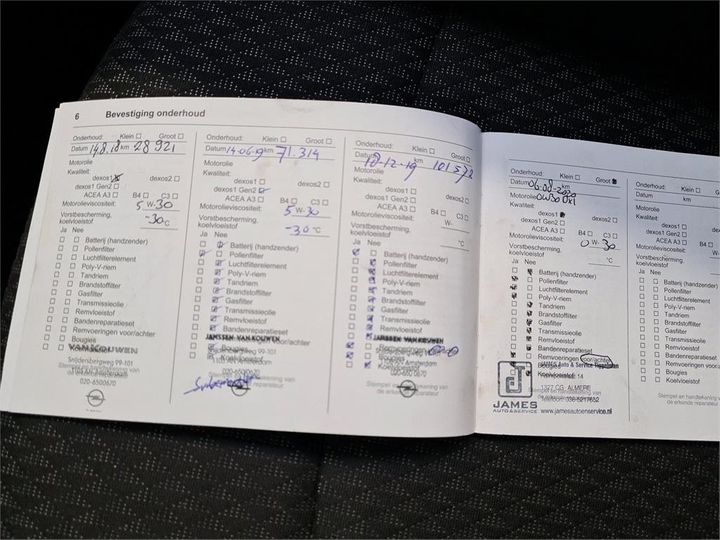 6 Bevestiging onderhoud
Onderhoud: Klein Groot
Datum 14.8.18 km 28921
Motorolie
Kwaliteit:
dexos1 dexos2
dexos1 Gen2
ACEA A3 B4 C3
Motorolieviscositeit: 5 W-30
Vorstbescherming, koelvloeistof -30°C
Ja Nee
Batterij (handzender)
Pollenfilter
Luchtfilterelement
Poly-V-riem
Tandriem
Brandstoffilter
Gasfilter
Transmissieolie
Remvloeistof
Bandenreparatieset
Remvoeringen voor/achter
Bougies
VAN KOUWEN
Snijdersbergweg 99-101
020-6500670
Onderhoud: Klein Groot
Datum 14-06-19 km 71.314
Motorolie
Kwaliteit:
dexos1 dexos2
dexos1 Gen2
ACEA A3 B4 C3
Motorolieviscositeit: 5 W-30
Vorstbescherming, koelvloeistof -30°C
Ja Nee
Batterij (handzender)
Pollenfilter
Luchtfilterelement
Poly-V-riem
Tandriem
Brandstoffilter
Gasfilter
Transmissieolie
Remvloeistof
Bandenreparatieset
JANSSEN VAN KOUWEN
Snijdersbergweg 99-101
020-6500670
Onderhoud: Klein Groot
Datum 18-12-19 km
Motorolie
Kwaliteit:
dexos1 dexos2
dexos1 Gen2
ACEA A3 B4 C3
Motorolieviscositeit: W-
Vorstbescherming, koelvloeistof °C
Ja Nee
Batterij (handzender)
Pollenfilter
Luchtfilterelement
Poly-V-riem
Tandriem
Brandstoffilter
Gasfilter
Transmissieolie
Remvloeistof
JANSSEN VAN KOUWEN
Koelvloeistof
Stempel en handtekening van de erkende reparateur
Onderhoud: Klein Groot
Datum 06-08-2020 km
Motorolie 0W30
Kwaliteit:
dexos1 dexos2
dexos1 Gen2
ACEA A3 B4 C3
Motorolieviscositeit: 0 W-30
Vorstbescherming, koelvloeistof °C
Ja Nee
Batterij (handzender)
Pollenfilter
Luchtfilterelement
Poly-V-riem
Tandriem
Brandstoffilter
Gasfilter
Transmissieolie
Remvloeistof
Bandenreparatieset
Remvoeringen voor/achter
JAMES Auto & Service
14
1327 CG ALMERE
JAMES
AUTO&SERVICE
www.jamesautoenservice.nl
Onderhoud:
Datum
Motorolie
Kwaliteit:
Motorolieviscositeit:
Vorstbescherming, koelvloeistof
Ja Nee
Batterij (handzender)
Pollenfilter
Luchtfilterelement
Poly-V-riem
Tandriem
Brandstoffilter
Gasfilter
Transmissieolie
Remvloeistof
Bandenreparatieset
Remvoeringen
Bougies
Koelvloeistof
Stempel en handtekening van
de erkende reparateur